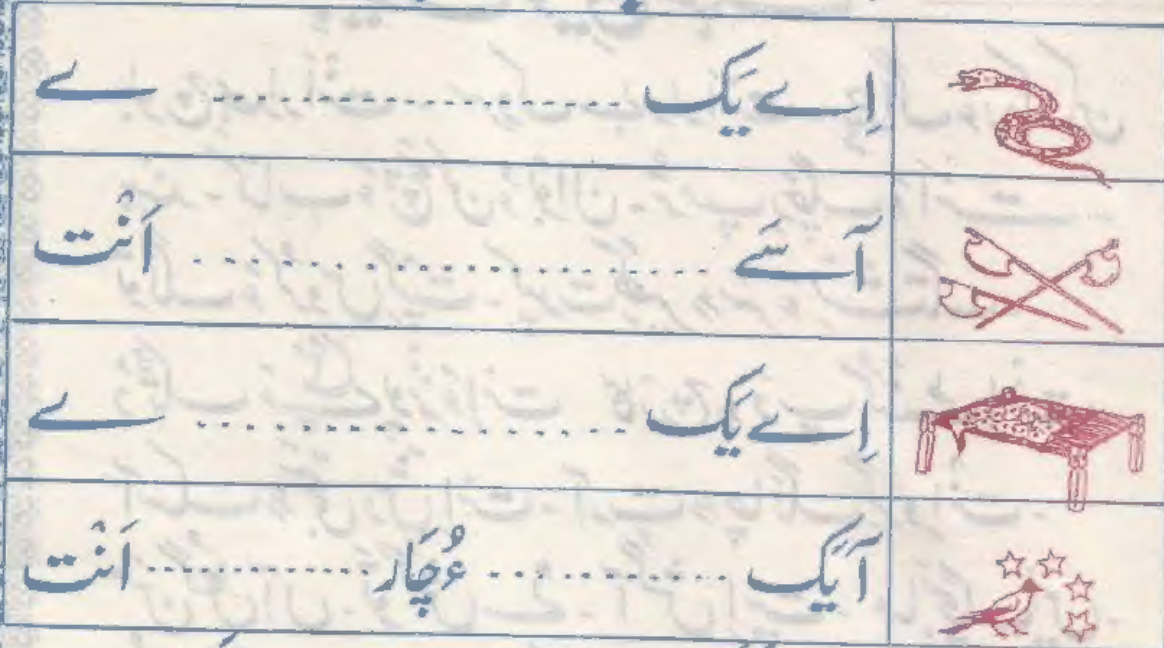 اِے یَک ........................ ے
آ سَے ........................ اَنْت
اِے یَک ........................ ے
آ یَک .............. ءُ چَار .............. اَنْت